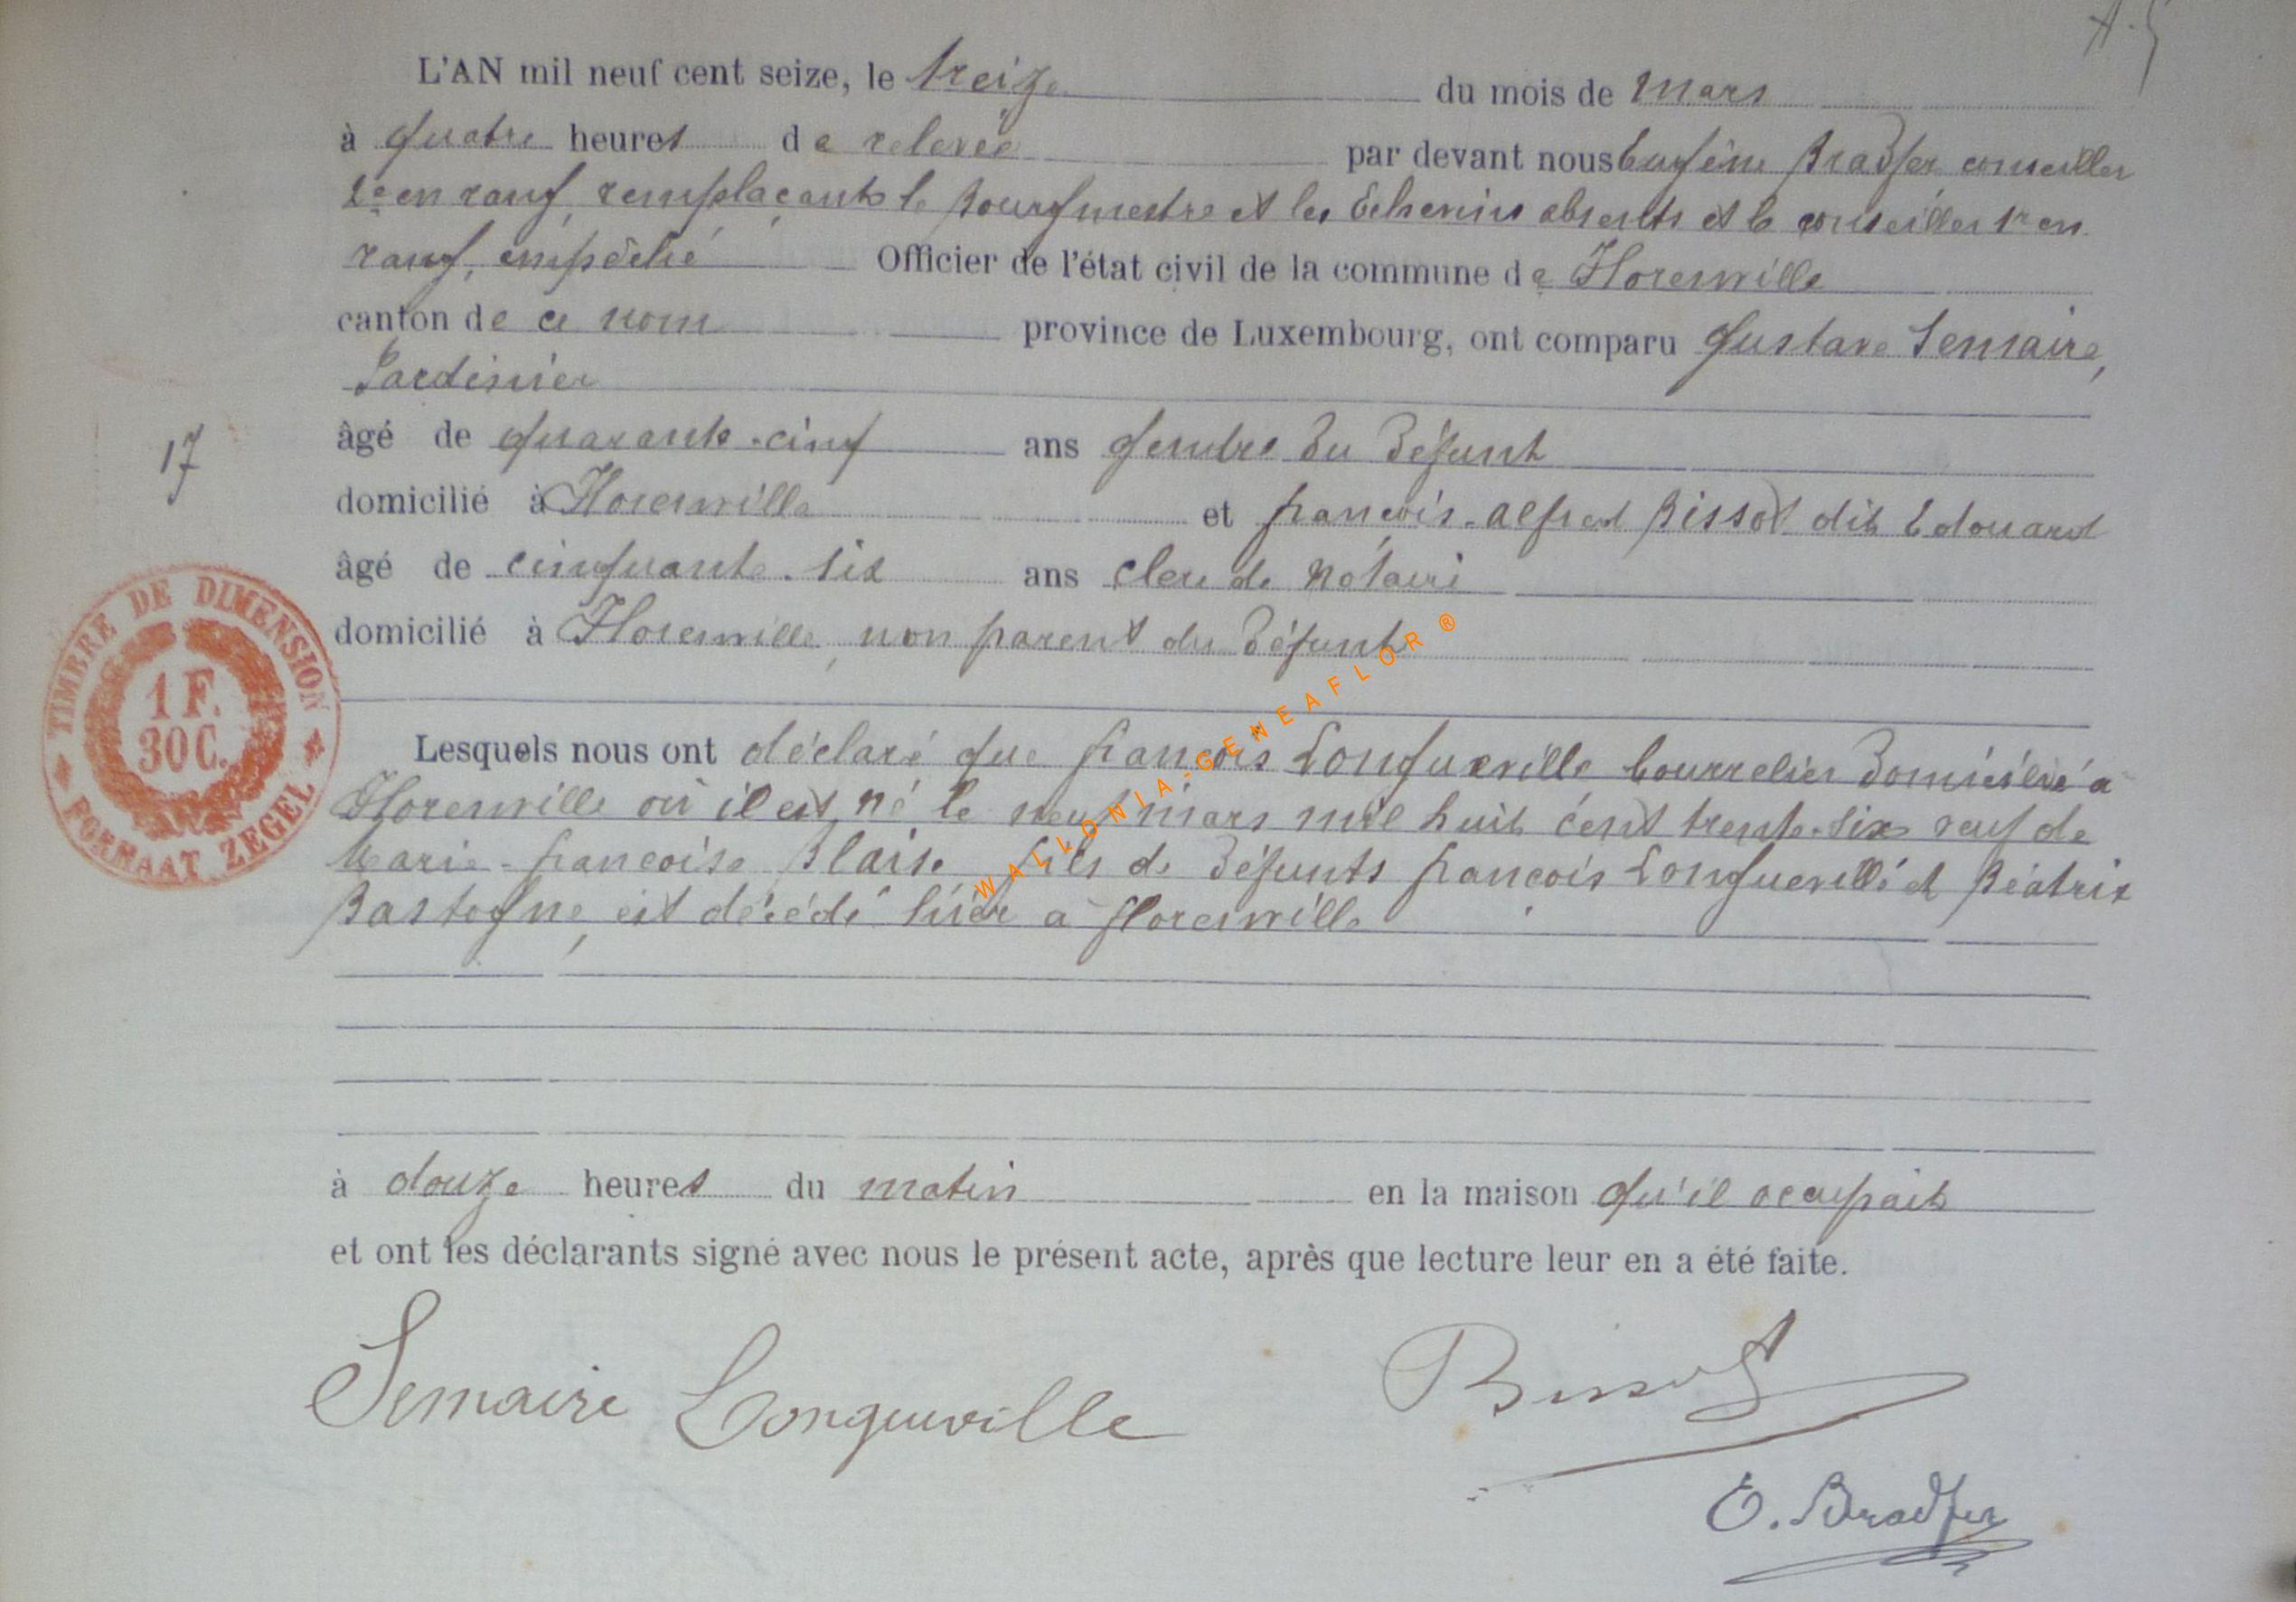 L'AN mil neuf cent seize, le treize du mois de mars
à quatre heures de relevée par devant nous Eugène Bradfer conseiller
2e en rang, remplaçant le Bourgmestre et les Echevins absents et le conseiller 1r en
rang, empêché Officier de l'état civil de la commune de Florenville
canton de ce nom province de Luxembourg, ont comparu Gustave Semaire,
Jardinier
âgé de quarante-cinq ans gendre du défunt
17
domicilié à Florenville et françois-alfred Bissot dit Edouard
âgé de cinquante-six ans clerc de Notaire
domicilié à Florenville, non parent du défunt
TIMBRE DE DIMENSION
1 F.
30 C.
FORMAAT ZEGEL
Lesquels nous ont déclaré que françois Longueville bourrelier domicilié à
Florenville où il est né le neuf mars mil huit cent trente-six veuf de
Marie-françoise Blaise fils de défunts françois Longueville et Béatrix
Bastogne, est décédé hier à florenville
à douze heures du matin en la maison qu'il occupait
et ont les déclarants signé avec nous le présent acte, après que lecture leur en a été faite.
Semaire Longueville Bissot
E. Bradfer
WALLONIA-GENEAFLOR ®